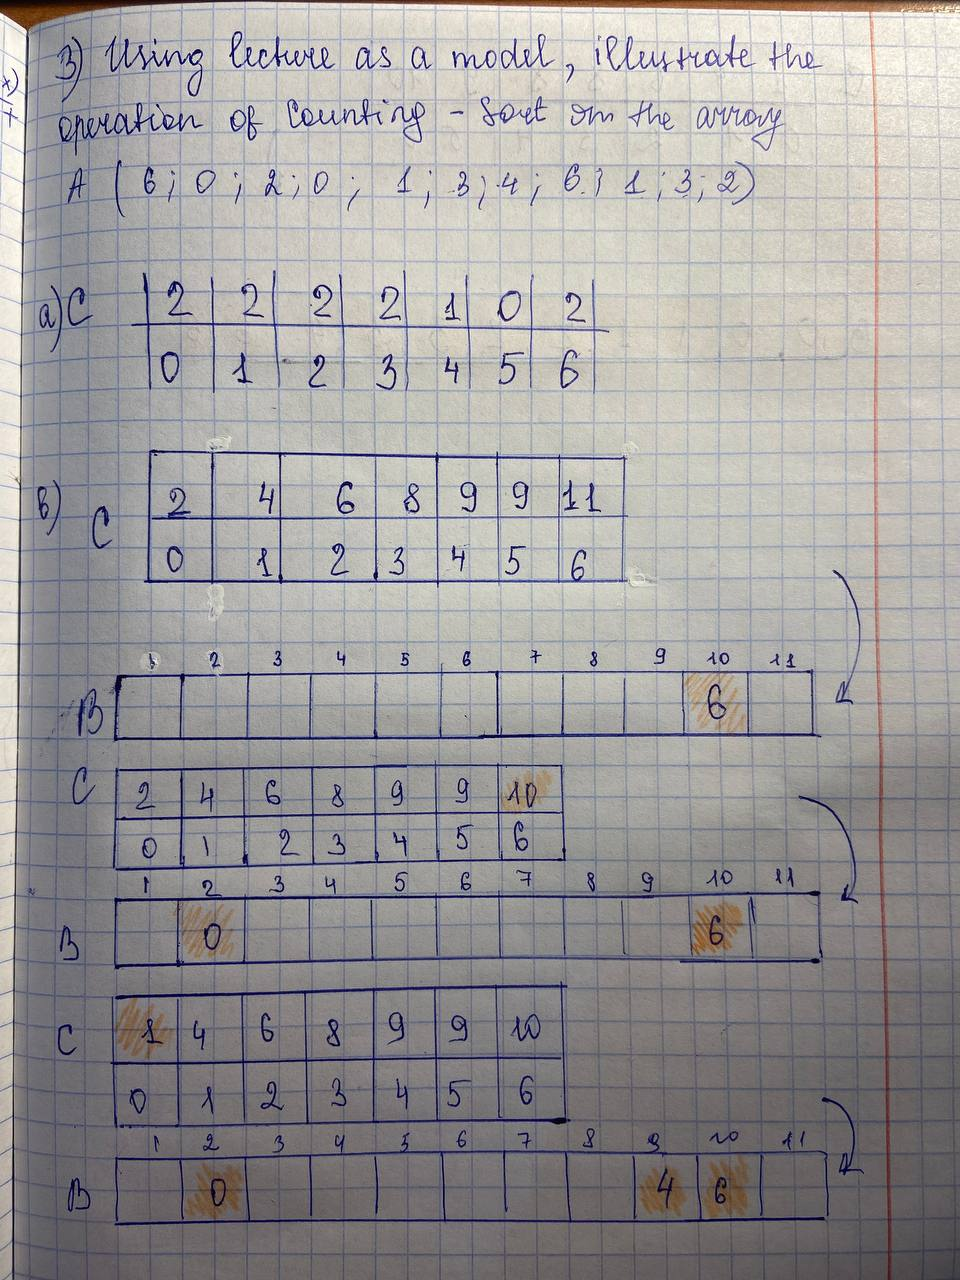 3) Using lecture as a model, illustrate the
operation of Counting - Sort on the array
A ( 6 ; 0 ; 2 ; 0 ; 1 ; 3 ; 4 ; 6 ; 1 ; 3 ; 2 )
a) C 2 2 2 2 1 0 2
0 1 2 3 4 5 6
в) C 2 4 6 8 9 9 11
0 1 2 3 4 5 6
1 2 3 4 5 6 7 8 9 10 11
B 6
C 2 4 6 8 9 9 10
0 1 2 3 4 5 6
1 2 3 4 5 6 7 8 9 10 11
B 0 6
C 1 4 6 8 9 9 10
0 1 2 3 4 5 6
1 2 3 4 5 6 7 8 9 10 11
B 0 4 6